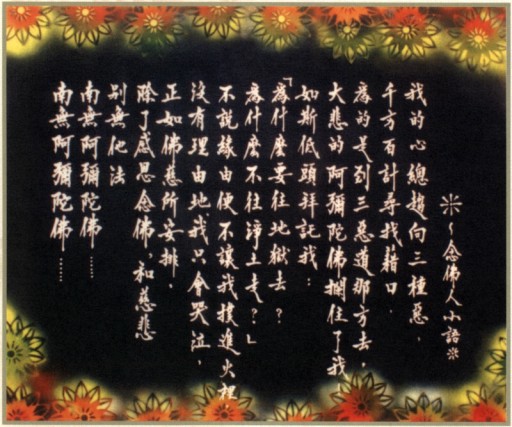 ※～念佛人小語※
我的心總趨向三種惡，
千方百計尋找藉口，
為的是到三惡道那方去，
大悲的阿彌陀佛攔住了我，
如斯低頭拜託我：
「為什麼要往地獄去？
為什麼不往淨土走？」
不說緣由便不讓我撲進火裡，
沒有理由地我只會哭泣，
正如佛慈所安排，
除了感恩念佛，和慈悲
別無他法
南無阿彌陀佛……
南無阿彌陀佛……